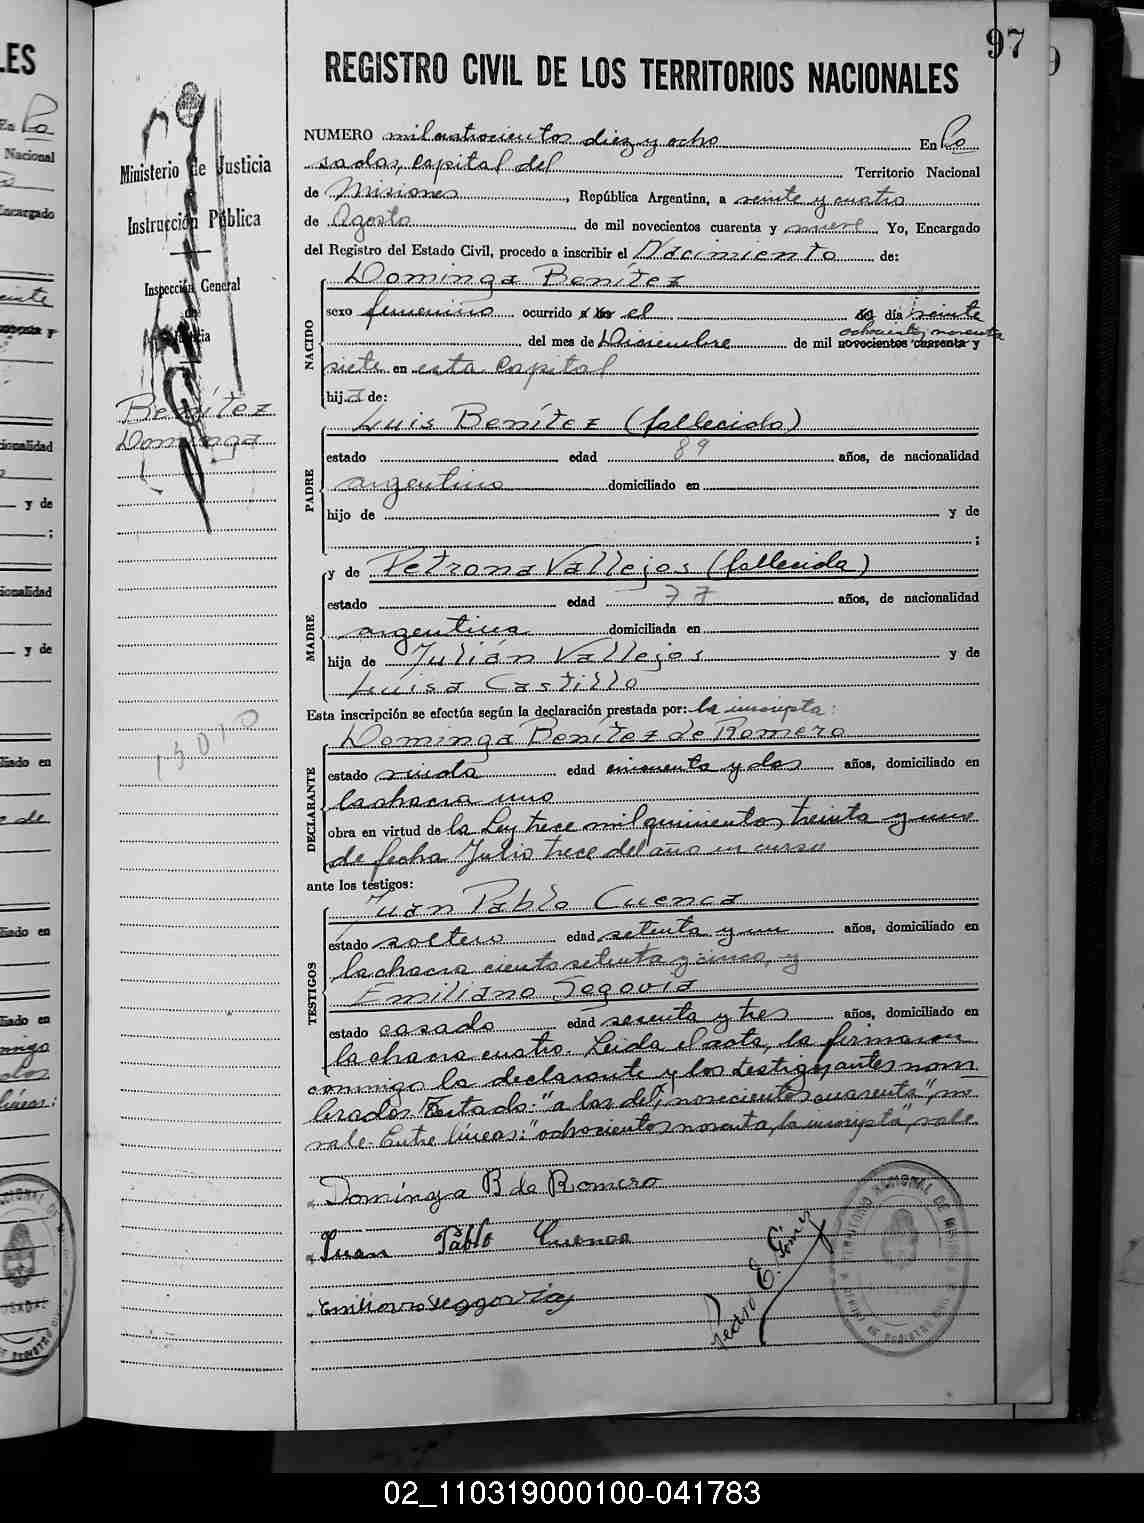 97
REGISTRO CIVIL DE LOS TERRITORIOS NACIONALES
Ministerio de Justicia
Instrucción Pública
Inspección General
de
Justicia
Benítez
Dominga
15010
NUMERO mil cuatrocientos diez y ocho En Po
sadas, capital del Territorio Nacional
de Misiones, República Argentina, a veinte y cuatro
de Agosto de mil novecientos cuarenta y nueve Yo, Encargado
del Registro del Estado Civil, procedo a inscribir el Nacimiento de:
NACIDO
Dominga Benítez
sexo femenino ocurrido a las el día veinte
ochocientos noventa
del mes de Diciembre de mil novecientos cuarenta y
siete en esta Capital
hija de:
PADRE
Luis Benítez (fallecido)
estado edad 89 años, de nacionalidad
argentino domiciliado en
hijo de y de
;
MADRE
y de Petrona Vallejos (fallecida)
estado edad 77 años, de nacionalidad
argentina domiciliada en
hija de Julián Vallejos y de
Luisa Castillo
Esta inscripción se efectúa según la declaración prestada por: la inscripta:
DECLARANTE
Dominga Benítez de Romero
estado viuda edad cincuenta y dos años, domiciliado en
la chacra uno
obra en virtud de la Ley trece mil quinientos treinta y uno
de fecha Julio trece del año en curso
ante los testigos:
TESTIGOS
Juan Pablo Cuenca
estado soltero edad setenta y un años, domiciliado en
la chacra ciento setenta y cinco, y
Emiliano Segovia
estado casado edad sesenta y tres años, domiciliado en
la chacra cuatro. Leida el acta, la firmaron
conmigo la declarante y los testigos antes nom
brados. Testado: "a las del, novecientos cuarenta", no
vale. Entre líneas: "ochocientos noventa, la inscripta", vale.
Dominga B de Romero
Juan Pablo Cuenca
Emiliano Seggovia
Pedro E. Gómez
02_110319000100-041783